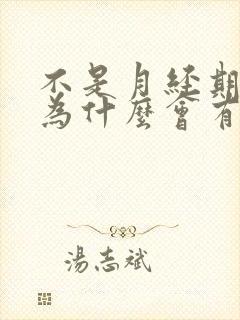 不是月经期
為什麼會有
湯志斌